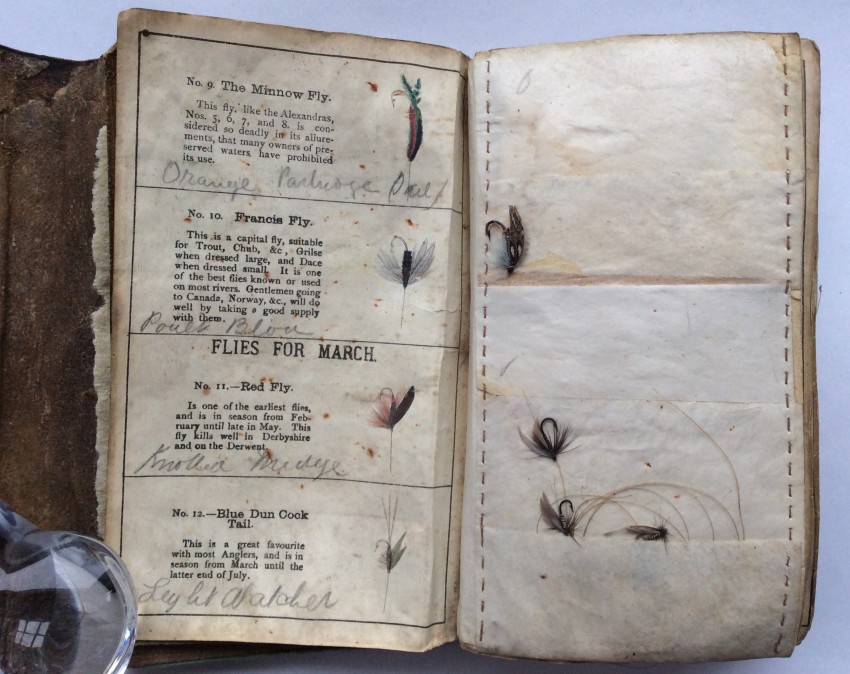 No. 9. The Minnow Fly.
This fly, like the Alexandras,
Nos. 5, 6, 7, and 8. is con-
sidered so deadly in its allure-
ments, that many owners of pre-
served waters have prohibited
its use.
Orange Partridge
No. 10. Francis Fly.
This is a capital fly, suitable
for Trout, Chub, &c, Grilse
when dressed large, and Dace
when dressed small. It is one
of the best flies known or used
on most rivers. Gentlemen going
to Canada, Norway, &c., will do
well by taking a good supply
with them.
FLIES FOR MARCH.
No. 11.—Red Fly.
Is one of the earliest flies,
and is in season from Feb-
ruary until late in May. This
fly kills well in Derbyshire
and on the Derwent.
Knotted Midge
No. 12.—Blue Dun Cock
Tail.
This is a great favourite
with most Anglers, and is in
season from March until the
latter end of July.